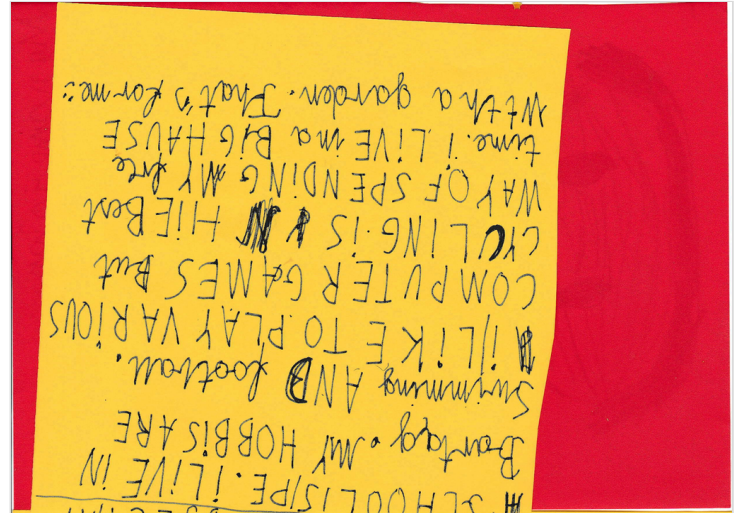 SCHOOL IS P.E. i LiVE iN
Bartąg. MY HOBBiS ARE
Swimming AND football.
i LiKE TO PLAY VARiOUS
COMPUTER GAMES But
CYCLING iS tHE Best
WAY OF SPENDiNG MY free
time. i LiVE in a BiG HAUSE
With a garden. That's for me: